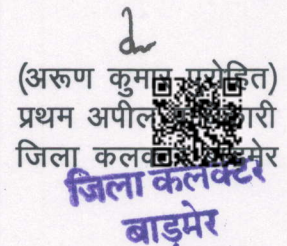 (अरूण कुमार पुरोहित)
प्रथम अपील
जिला
जिला कलक्टर
बाड़मेर